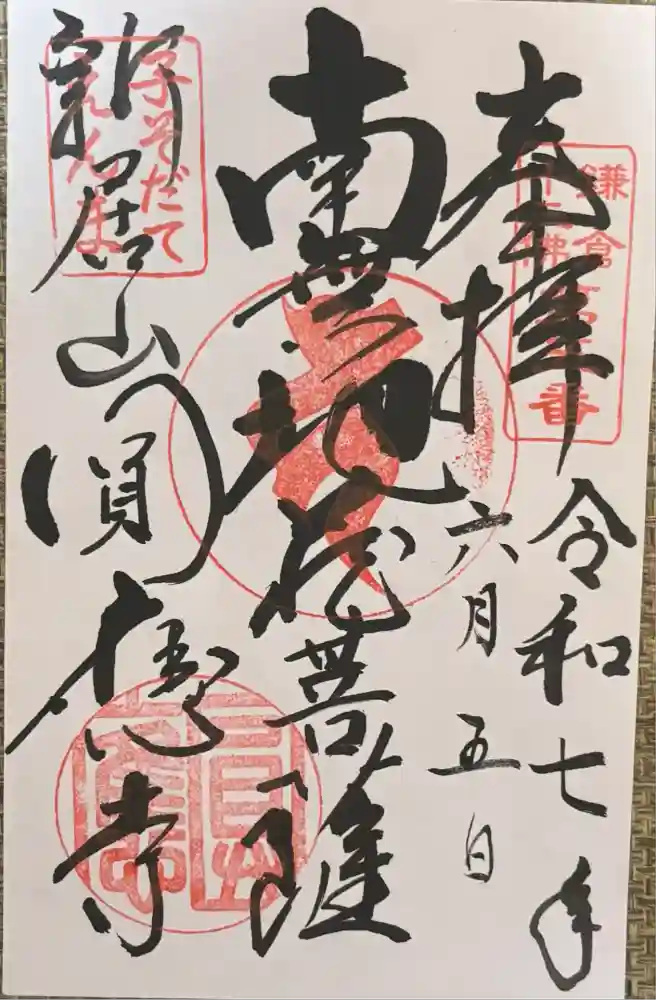 奉拝
鎌倉
十三佛
第五番
令和七年
六月五日
南無地蔵菩薩
子そだて
えんま
新居山
圓應寺